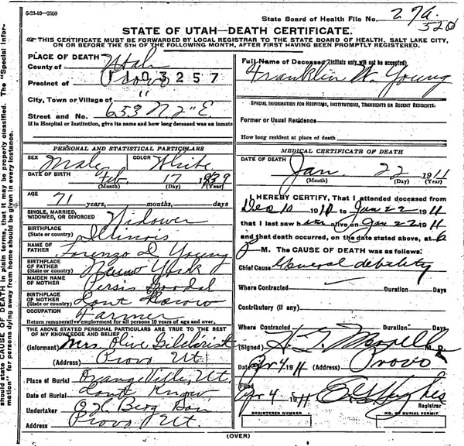 State Board of Health File No. 276
320
STATE OF UTAH—DEATH CERTIFICATE.
THIS CERTIFICATE MUST BE FORWARDED BY LOCAL REGISTRAR TO THE STATE BOARD OF HEALTH, SALT LAKE CITY,
ON OR BEFORE THE 5TH OF THE FOLLOWING MONTH, AFTER FIRST HAVING BEEN PROMPTLY REGISTERED.
PLACE OF DEATH
County of Utah
Precinct of Provo
1103257
City, Town or Village of "
Street and No. 653 N. 2" E
If in Hospital or Institution, give its name and how long deceased was an inmate
Full Name of Deceased (Initials only will not be accepted)
Franklin W. Young
SPECIAL INFORMATION FOR HOSPITALS, INSTITUTIONS, TRANSIENTS OR RECENT RESIDENTS.
Former or Usual Residence
How long resident at place of death
PERSONAL AND STATISTICAL PARTICULARS
SEX Male COLOR White
DATE OF BIRTH Feb 17 1839
(Month) (Day) (Year)
AGE
71 years, months, days
SINGLE, MARRIED,
WIDOWED, OR DIVORCED Widower
BIRTHPLACE
(State or country) Illinois
NAME OF
FATHER Lorenzo D. Young
BIRTHPLACE
OF FATHER
(State or country) New York
MAIDEN NAME
OF MOTHER Persis Goodal
BIRTHPLACE
OF MOTHER
(State or country) Dont Know
OCCUPATION Farmer
Return remunerative employment for all persons 10 years of age and over.
THE ABOVE STATED PERSONAL PARTICULARS ARE TRUE TO THE BEST
OF MY KNOWLEDGE AND BELIEF
(Informant) Mrs. Olive Gilchrist
(Address) Provo Ut.
Place of Burial Orangeville, Ut.
Date of Burial Dont Know
Undertaker O. H. Berg Son
Address Provo Ut
MEDICAL CERTIFICATE OF DEATH
DATE OF DEATH
Jan 22 1911
(Month) (Day) (Year)
I HEREBY CERTIFY, That I attended deceased from
Dec 10 1910 to Jan 22 1911
that I last saw him alive on Jan 22 1911
and that death occurred, on the date stated above, at 6
M. The CAUSE OF DEATH was as follows:
Chief Cause General debility
Where Contracted Duration Days
Contributory (if any)
Where Contracted Duration Days
(Signed)
Apr 4 1911 (Address) Provo
Filed
Apr 4 1911
Registrar
REGISTERED NUMBER NO. OF BURIAL PERMIT
(OVER)
should state CAUSE OF DEATH in plain
that it may be properly classified. The "Special Infor-
mation" for persons dying away from home should be given in every instance.